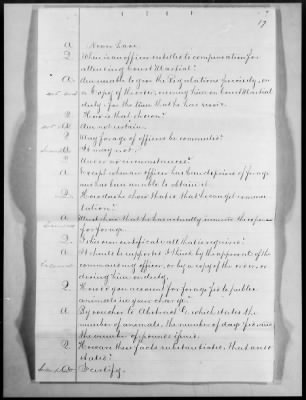 17
A Never have
Q When is an officer entitled to compensation for
attending Court Martial?
A Am unable to give the Regulations precisely, on
a copy of the order, ordering him on Court Martial
duty - for the time that he has service.
Q How is that shown?
A Am not certain.
Q May forage of officers be commuted?
A It may not.
Q Under no circumstances?
A Except when an officer has been deprived of forage
and has been unable to obtain it.
Q How does he show that is that he can get commu-
tation?
A Must show that he has actually incurred the expense
for forage.
Q Is his own certificate all that is required?
A It should be supported I think by the approval of the
commanding officer, or by a copy of the order, or-
dering him on duty.
Q How do you account for forage fed to public
animals in your charge?
A By voucher to Abstract G, which states the
number of animals, the number of days fed, and
the number of pounds issued.
Q How are these facts substantiated, that are so
stated?
A I certify.